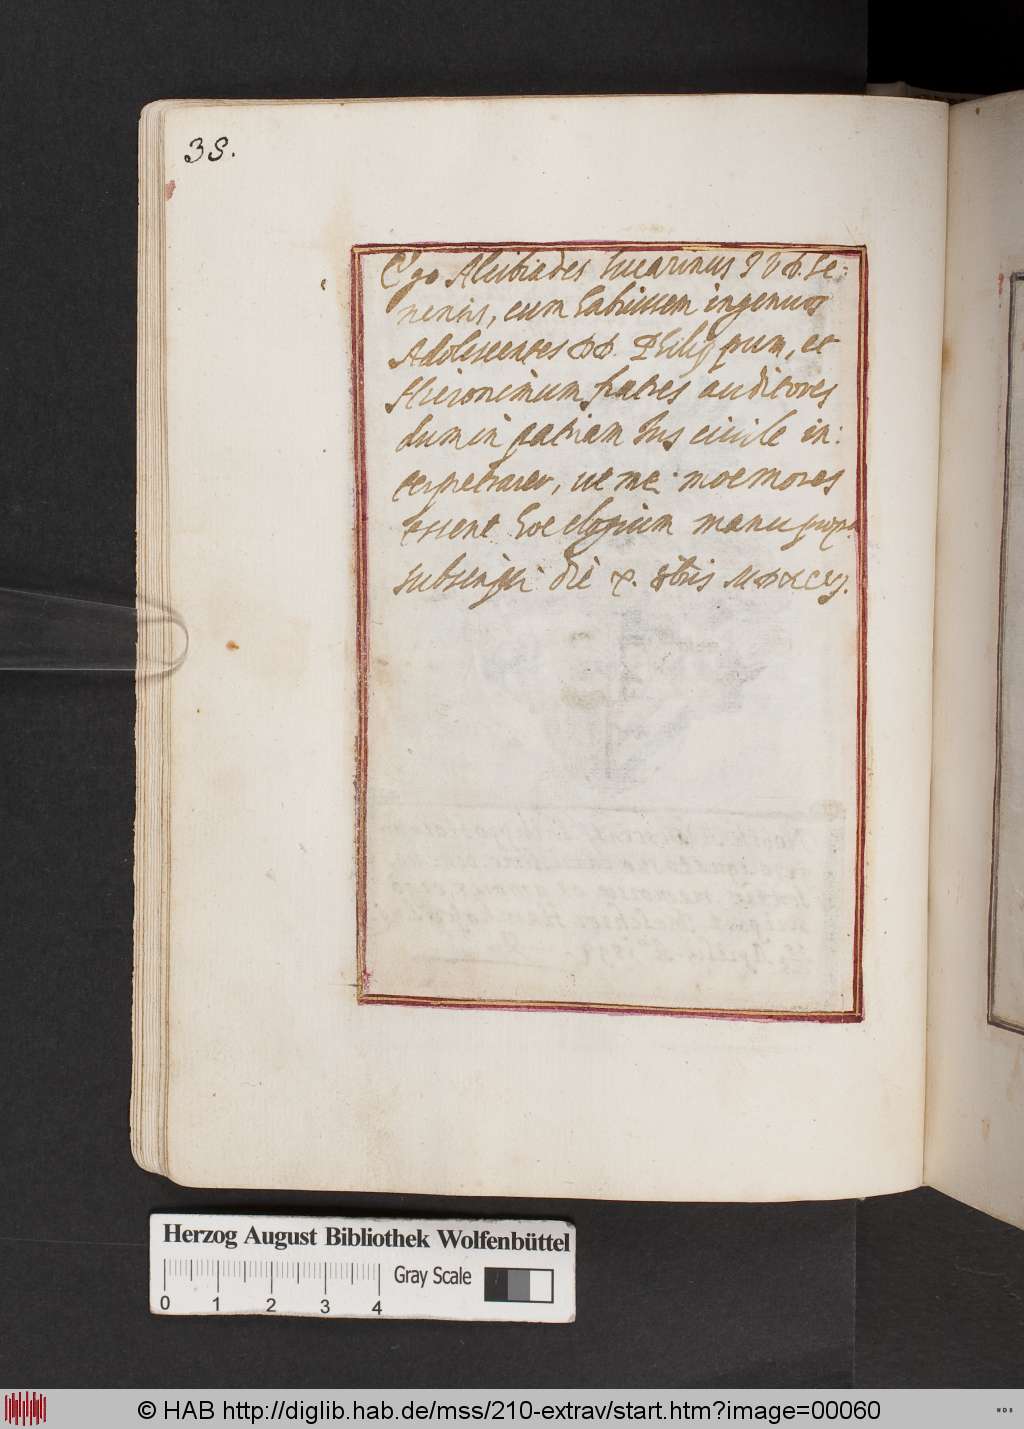 38.
Ego Alcibiades Lucarinus I V D. Se:
nensis, cum habuissem ingenuos
Adolescentes DD. Philippum, et
Hieronimum fratres auditores
dum in patriam Ius ciuile in:
terpretarer, ut mei moemores
essent hoc elogium manu prop.
subscripsi die x. 8bris MDXCVJ.
Herzog August Bibliothek Wolfenbüttel
Gray Scale
0 1 2 3 4
© HAB http://diglib.hab.de/mss/210-extrav/start.htm?image=00060